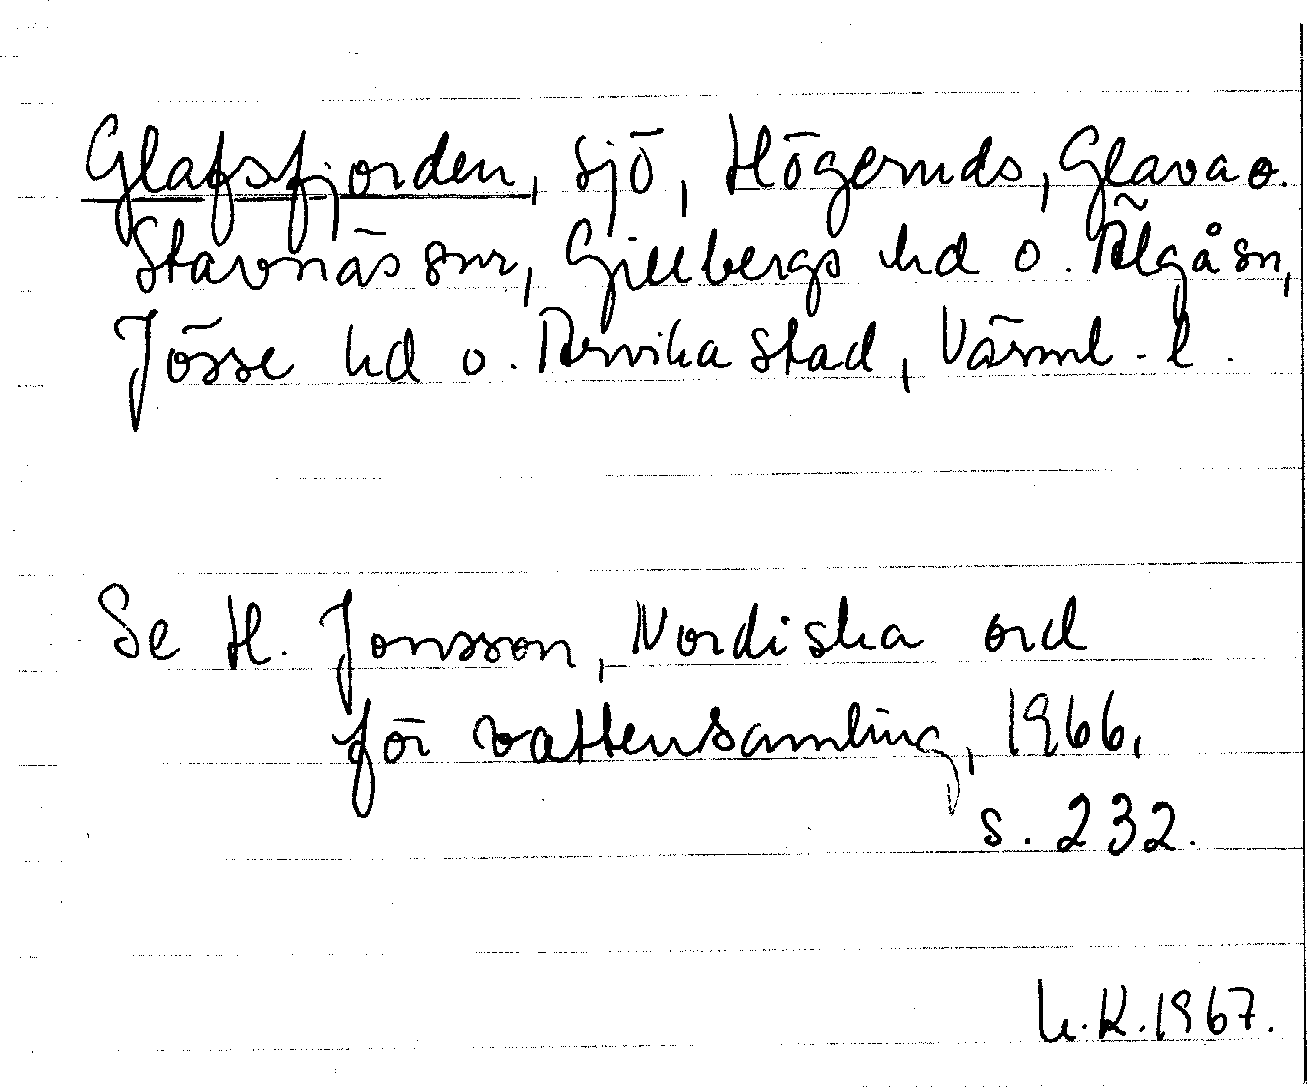 Glafsfjorden, sjö, Högeruds, Glava o.
Stavnäs snr, Gillbergs hd o. Älgå sn,
Jösse hd o. Arvika stad, Värml. l.
Se H. Jonsson, Nordiska ord
för vattensamling, 1966,
s. 232.
K. 1967.